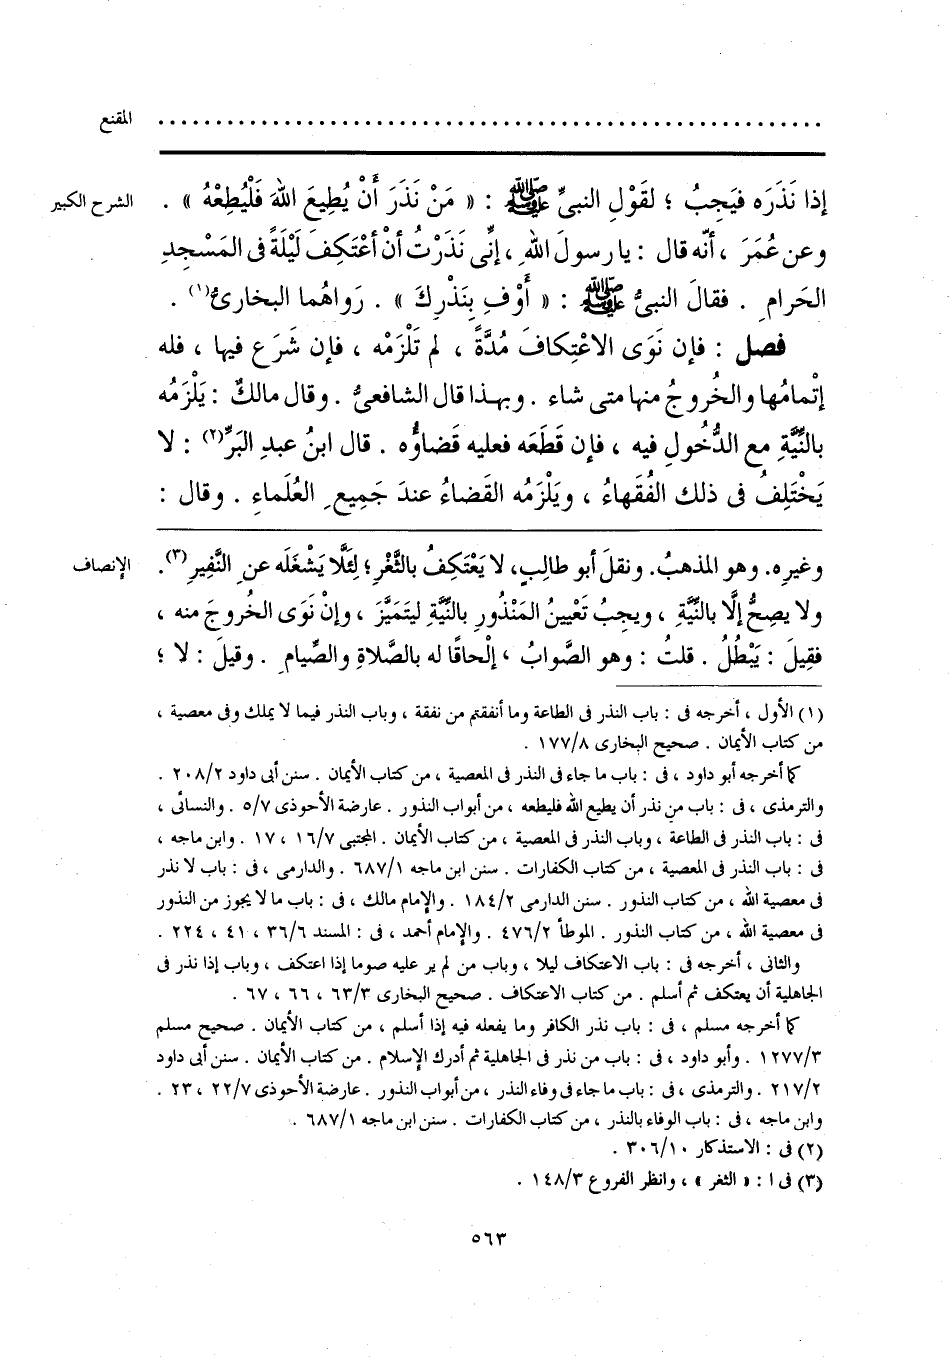 المقنع ........................................................
الشرح الكبير
إذا نَذَرَه فيَجِبُ ؛ لقَوْلِ النبىِّ ﷺ : « مَنْ نَذَرَ أَنْ يُطِيعَ اللهَ فَلْيُطِعْهُ » .
وعن عُمَرَ ، أنَّه قال : يا رسولَ اللهِ ، إنِّى نَذَرْتُ أنْ أعْتَكِفَ لَيْلَةً فى المَسْجِدِ
الحَرامِ . فقالَ النبىُّ ﷺ : « أَوْفِ بِنَذْرِكَ » . رَواهُما البخارىُّ(١) .
فصل : فإن نَوَى الاعْتِكافَ مُدَّةً ، لم تَلْزَمْه ، فإن شَرَع فيها ، فله
إتْمامُها والخُروجُ منها متى شاء . وبهذا قال الشافعىُّ . وقال مالكٌ : يَلْزَمُه
بالنِّيَّةِ مع الدُّخُولِ فيه ، فإن قَطَعَه فعليه قَضاؤُه . قال ابنُ عبدِ البَرِّ(٢) : لا
يَخْتَلِفُ فى ذلك الفُقَهاءُ ، ويَلْزَمُه القَضاءُ عندَ جَمِيعِ العُلَماءِ . وقال :
الإنصاف
وغيرِه. وهو المذهبُ. ونقلَ أبو طالبٍ، لا يَعْتَكِفُ بالثَّغْرِ؛ لِئَلَّا يَشْغَلَه عن النَّفِيرِ(٣).
ولا يصِحُّ إلَّا بالنِّيَّةِ ، ويجبُ تَعْيينُ المَنْذُورِ بالنِّيَّةِ ليتَميَّزَ ، وإنْ نَوَى الخُروجَ منه ،
فقِيلَ : يَبْطُلُ . قلتُ : وهو الصَّوابُ ، إلْحاقًا له بالصَّلاةِ والصِّيامِ . وقيلَ : لا ؛
(١) الأول ، أخرجه فى : باب النذر فى الطاعة وما أنفقتم من نفقة ، وباب النذر فيما لا يملك وفى معصية ،
من كتاب الأيمان . صحيح البخارى ١٧٧/٨ .
كما أخرجه أبو داود ، فى : باب ما جاء فى النذر فى المعصية ، من كتاب الأيمان . سنن أبى داود ٢٠٨/٢ .
والترمذى ، فى : باب من نذر أن يطيع الله فليطعه ، من أبواب النذور . عارضة الأحوذى ٥/٧ . والنسائى ،
فى : باب النذر فى الطاعة ، وباب النذر فى المعصية ، من كتاب الأيمان . المجتبى ١٦/٧ ، ١٧ . وابن ماجه ،
فى : باب النذر فى المعصية ، من كتاب الكفارات . سنن ابن ماجه ٦٨٧/١ . والدارمى ، فى : باب لا نذر
فى معصية الله ، من كتاب النذور . سنن الدارمى ١٨٤/٢ . والإمام مالك ، فى : باب ما لا يجوز من النذور
فى معصية الله ، من كتاب النذور . الموطأ ٤٧٦/٢ . والإمام أحمد ، فى : المسند ٣٦/٦ ، ٤١ ، ٢٢٤ .
والثانى ، أخرجه فى : باب الاعتكاف ليلا ، وباب من لم ير عليه صوما إذا اعتكف ، وباب إذا نذر فى
الجاهلية أن يعتكف ثم أسلم . من كتاب الاعتكاف . صحيح البخارى ٦٣/٣ ، ٦٦ ، ٦٧ .
كما أخرجه مسلم ، فى : باب نذر الكافر وما يفعله فيه إذا أسلم ، من كتاب الأيمان . صحيح مسلم
١٢٧٧/٣ . وأبو داود ، فى : باب من نذر فى الجاهلية ثم أدرك الإسلام . من كتاب الأيمان . سنن أبى داود
٢١٧/٢ . والترمذى ، فى : باب ما جاء فى وفاء النذر ، من أبواب النذور . عارضة الأحوذى ٢٢/٧ ، ٢٣ .
وابن ماجه ، فى : باب الوفاء بالنذر ، من كتاب الكفارات . سنن ابن ماجه ٦٨٧/١ .
(٢) فى : الاستذكار ٣٠٦/١٠ .
(٣) فى ا : « الثغر » ، وانظر الفروع ١٤٨/٣ .
٥٦٣